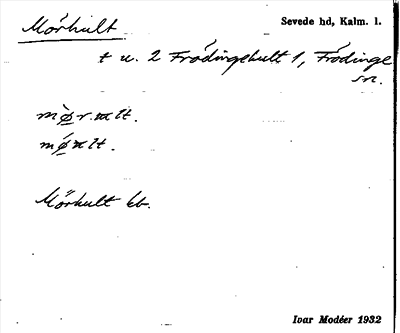 Mörhult
Sevede hd, Kalm. l.
t u. 2 Frödingehult 1, Frödinge
sn.
Mörhult kb.
Ivar Modéer 1932